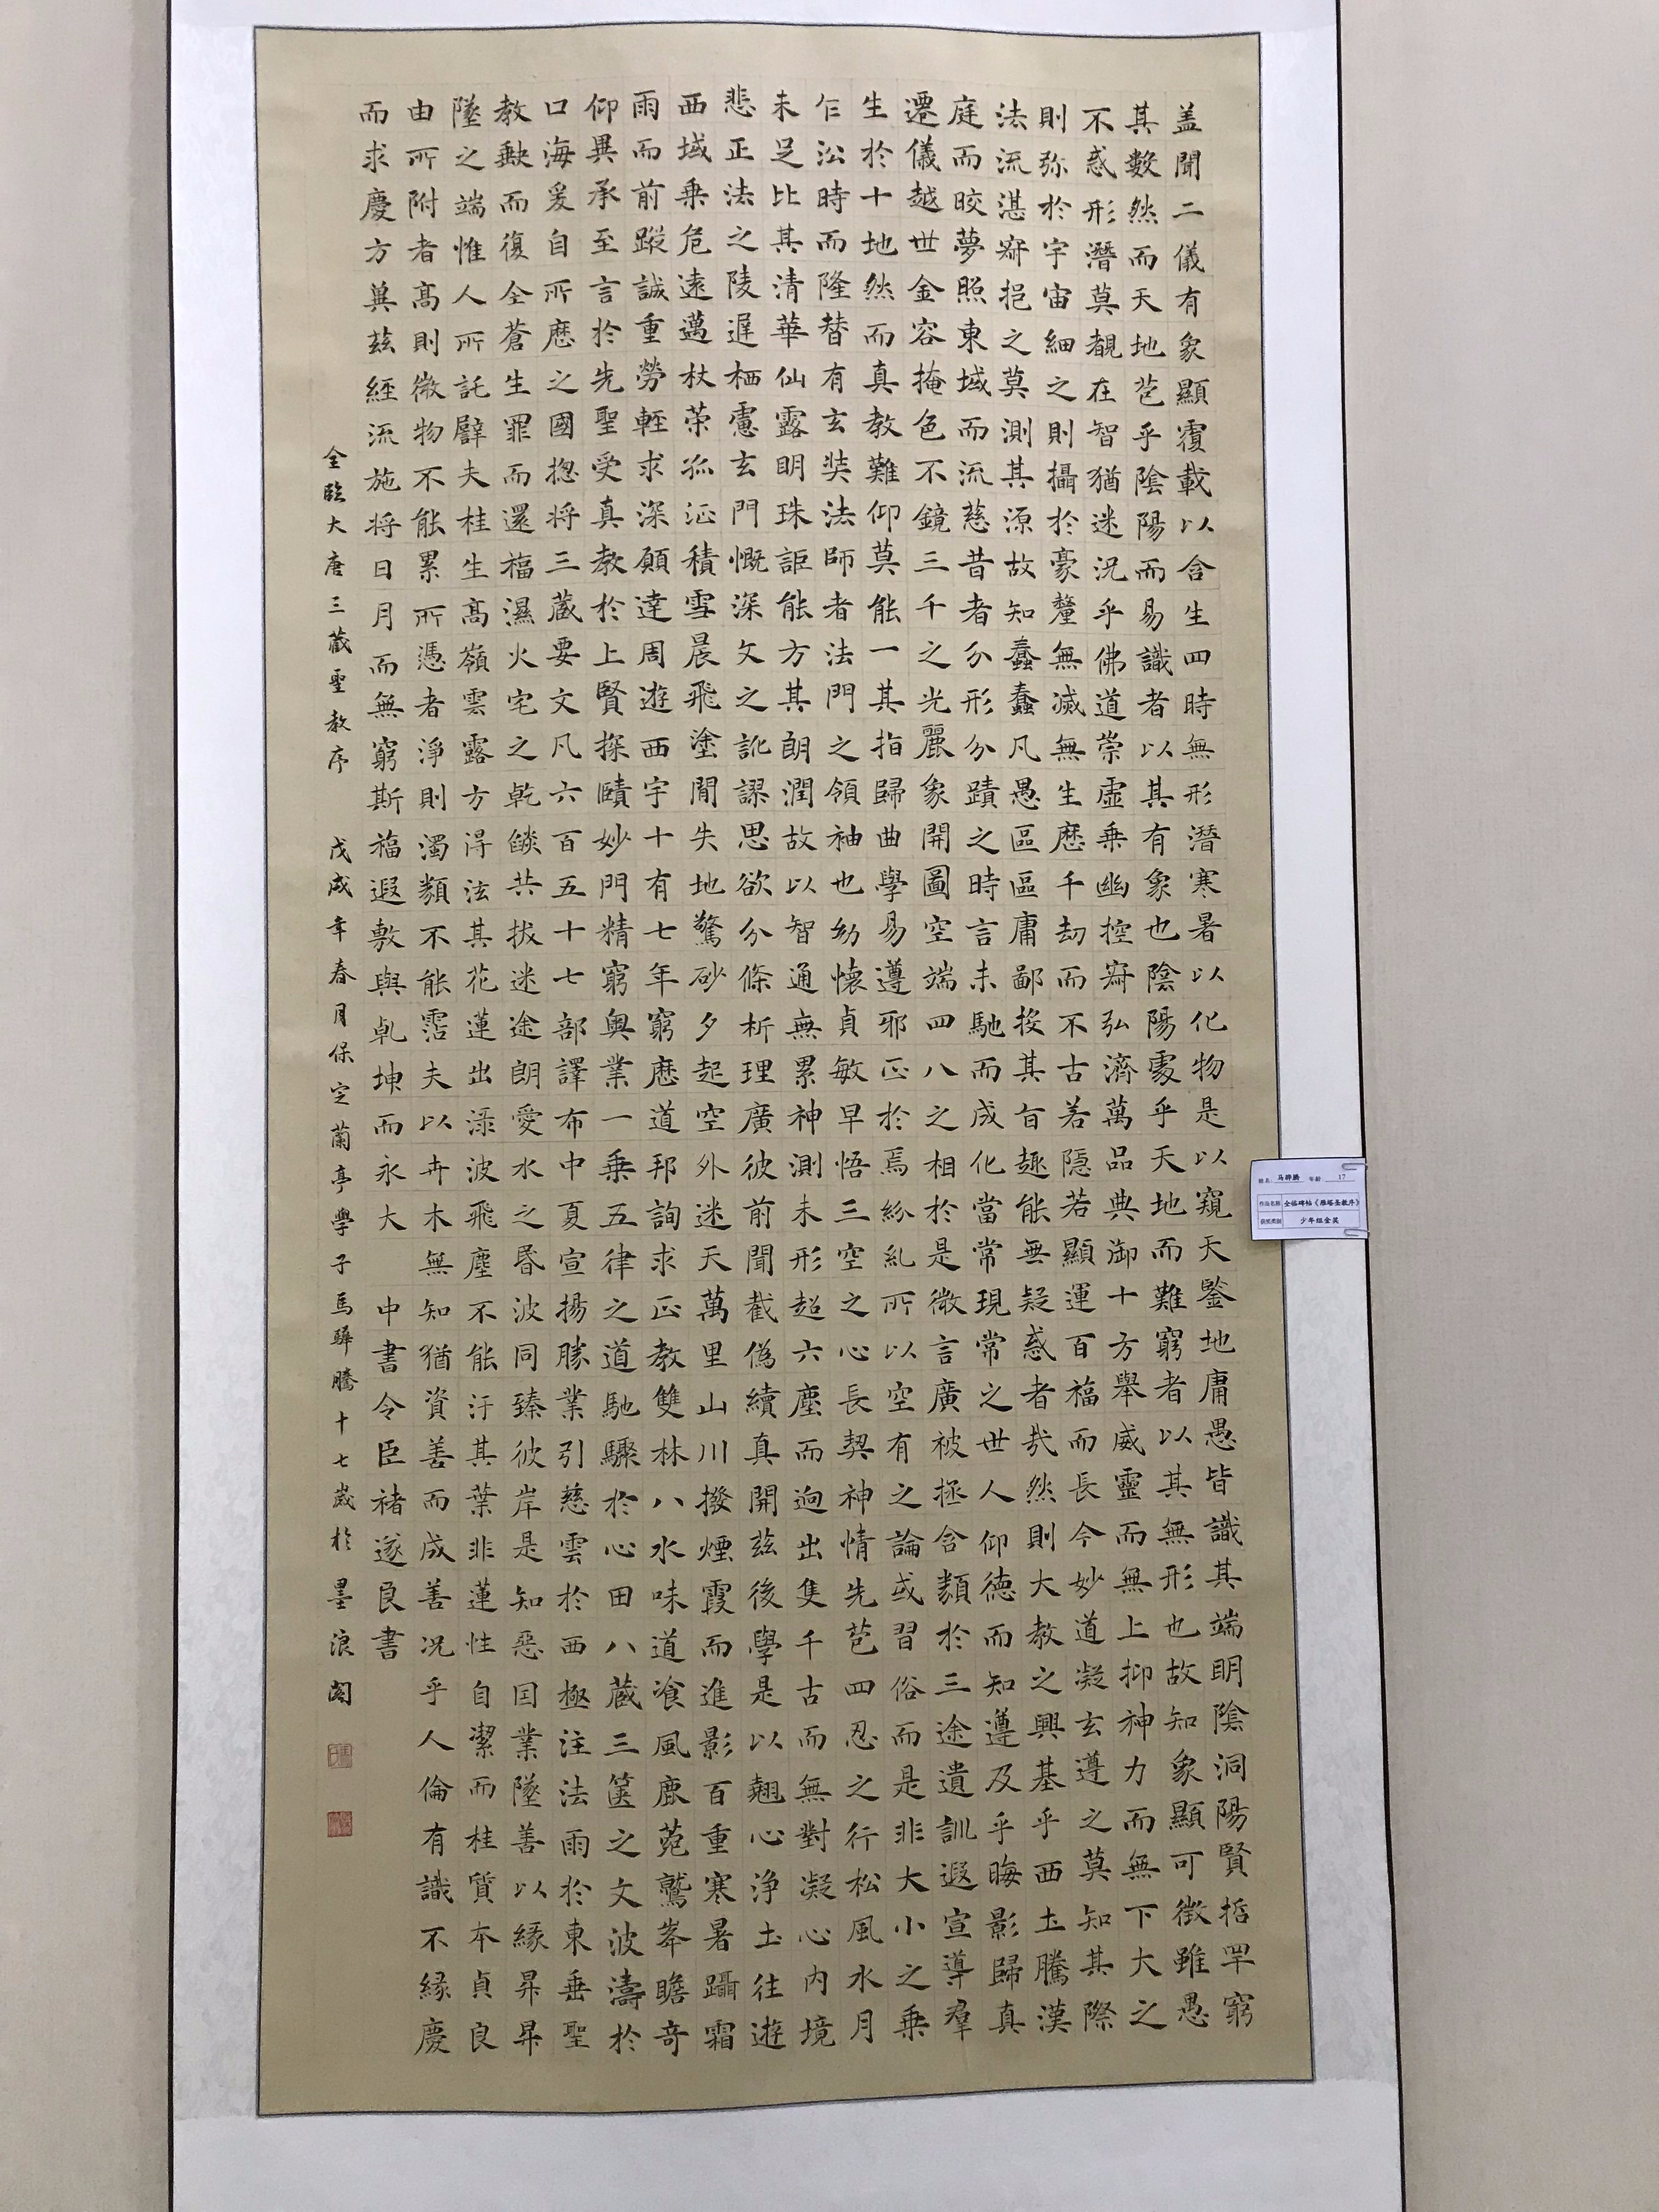 盖聞二儀有象顯覆載以含生四時無形潛寒暑以化物是以窺天鑒地庸愚皆識其端明陰洞陽賢哲罕窮
其數然而天地苞乎陰陽而易識者以其有象也陰陽處乎天地而難窮者以其無形也故知象顯可徵雖愚
不惑形潛莫覩在智猶迷況乎佛道崇虛乘幽控寂弘濟萬品典御十方舉威靈而無上抑神力而無下大之
則弥於宇宙細之則攝於豪釐無滅無生歷千劫而不古若隱若顯運百福而長今妙道凝玄遵之莫知其際
法流湛寂挹之莫測其源故知蠢蠢凡愚區區庸鄙投其旨趣能無疑惑者哉然則大教之興基乎西土騰漢
庭而晈夢照東域而流慈昔者分形分蹟之時言未馳而成化當常現常之世人仰德而知遵及乎晦影歸真
遷儀越世金容掩色不鏡三千之光麗象開圖空端四八之相於是微言廣被拯含類於三途遺訓遐宣導羣
生於十地然而真教難仰莫能一其指歸曲學易遵邪正於焉紛糺所以空有之論或習俗而是非大小之乘
乍沿時而隆替有玄奘法師者法門之領袖也幼懷貞敏早悟三空之心長契神情先苞四忍之行松風水月
未足比其清華仙露明珠詎能方其朗潤故以智通無累神測未形超六塵而迥出隻千古而無對凝心內境
悲正法之陵遲栖慮玄門慨深文之訛謬思欲分條析理廣彼前聞截偽續真開茲後學是以翹心淨土往遊
西域乘危遠邁杖策孤征積雪晨飛塗閒失地驚砂夕起空外迷天萬里山川撥煙霞而進影百重寒暑躡霜
雨而前蹤誠重勞輕求深願達周遊西宇十有七年窮歷道邦詢求正教雙林八水味道飡風鹿菀鷲峯瞻奇
仰異承至言於先聖受真教於上賢探賾妙門精窮奧業一乘五律之道馳驟於心田八藏三篋之文波濤於
口海爰自所歷之國揔將三藏要文凡六百五十七部譯布中夏宣揚勝業引慈雲於西極注法雨於東垂聖
教缺而復全蒼生罪而還福濕火宅之乾燄共拔迷途朗愛水之昏波同臻彼岸是知惡因業墜善以緣昇昇
墜之端惟人所託譬夫桂生高嶺雲露方得泫其花蓮出淥波飛塵不能汙其葉非蓮性自潔而桂質本貞良
由所附者高則微物不能累所憑者淨則濁類不能霑夫以卉木無知猶資善而成善況乎人倫有識不緣慶
而求慶方冀茲經流施將日月而無窮斯福遐敷與乾坤而永大 中書令臣褚遂良書
全臨大唐三藏聖教序 戊戌年春月保定蘭亭學子馬驊騰十七歲於墨浪閣
姓名: 马骅腾 年龄 17
作品名称 全临碑帖《雁塔圣教序》
获奖类别 少年组金奖